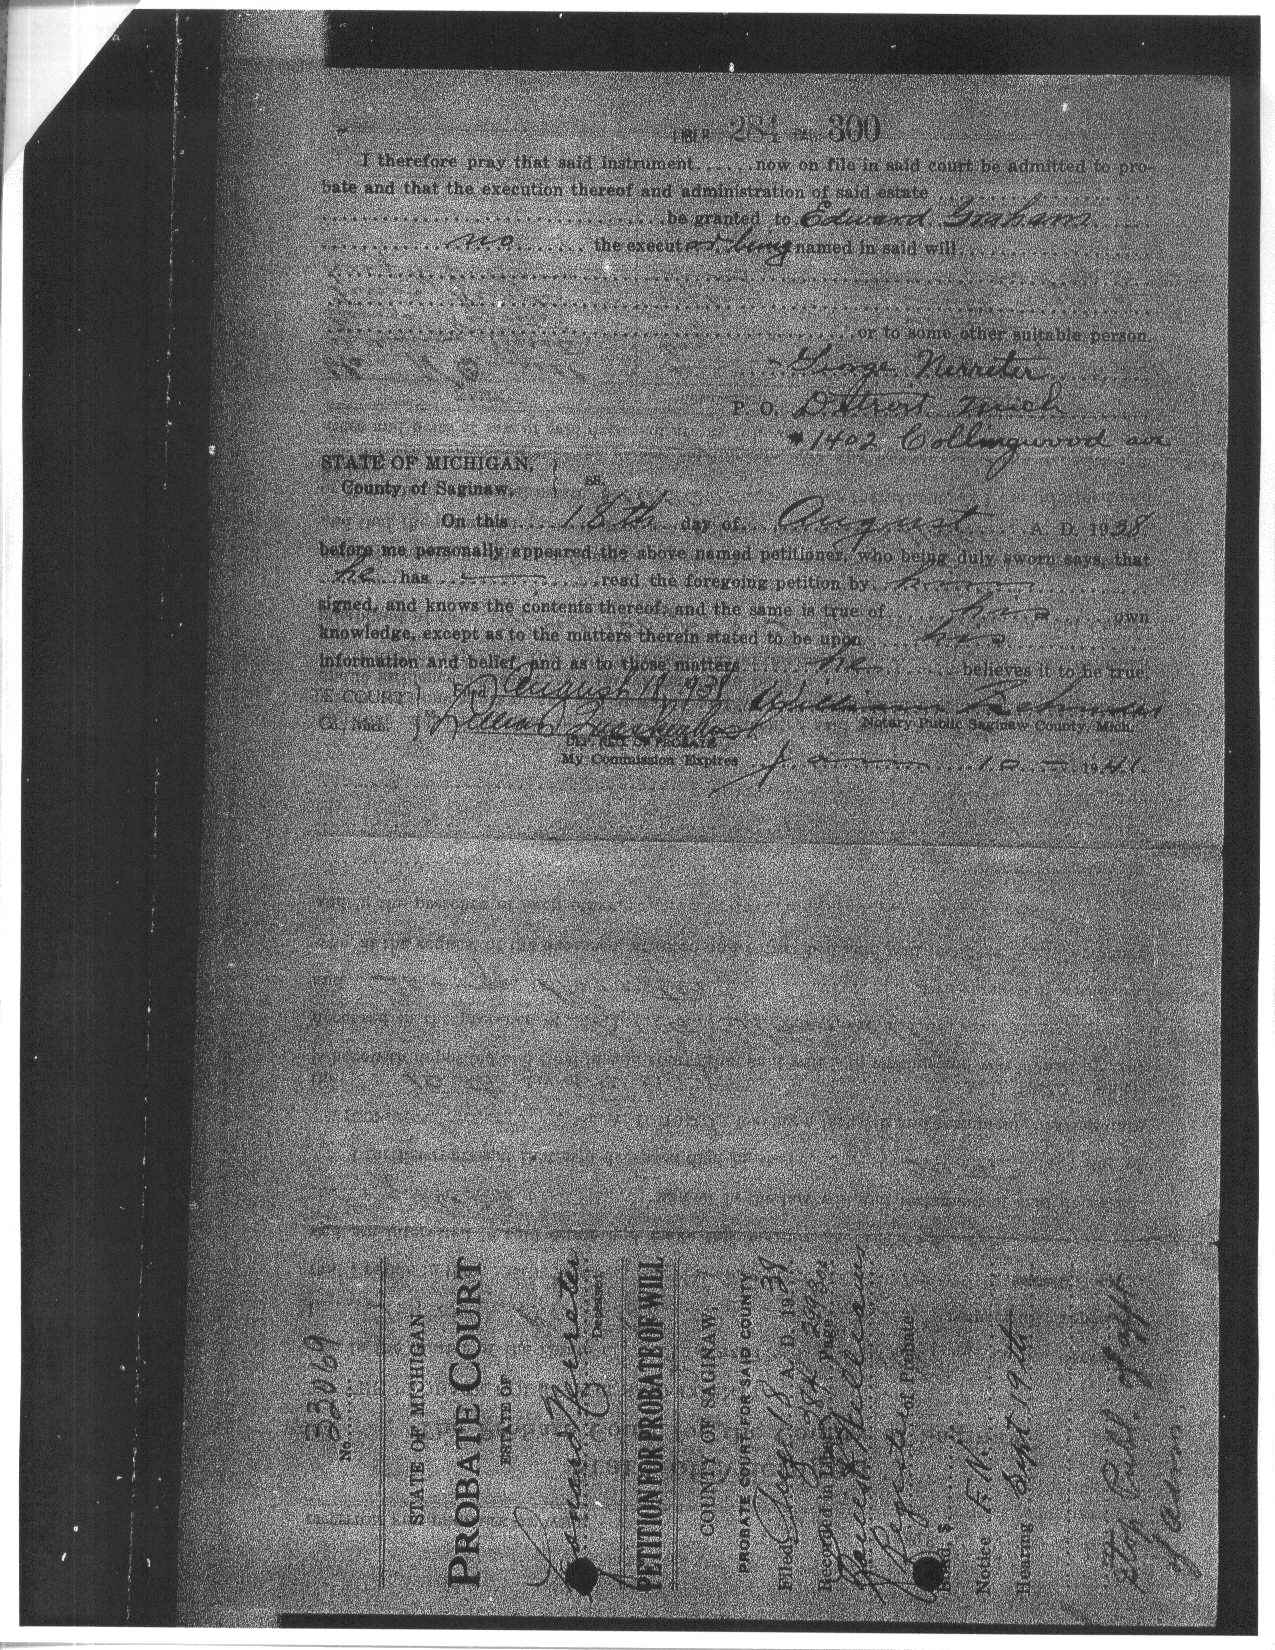 LIBER 284 PAGE 300
I therefore pray that said instrument...... now on file in said court be admitted to pro-
bate and that the execution thereof and administration of said estate
be granted to Edward Graham
no the executor being named in said will
or to some other suitable person.
George Nerreter
P. O. Detroit Mich
1402 Collingwood ave
STATE OF MICHIGAN,
County of Saginaw. ss.
On this 18th day of August A. D. 1938
before me personally appeared the above named petitioner, who being duly sworn says, that
he has read the foregoing petition by
signed, and knows the contents thereof, and the same is true of his own
knowledge, except as to the matters therein stated to be upon his
information and belief, and as to those matters he believes it to be true.
TE COURT Filed August 18, 1938 William
Co., Mich. Notary Public, Saginaw County, Mich.
My Commission Expires Jan 10 - 1941.
No. 33069
STATE OF MICHIGAN
PROBATE COURT
ESTATE OF
Leonard Nerreter
Deceased.
PETITION FOR PROBATE OF WILL
COUNTY OF SAGINAW,
PROBATE COURT FOR SAID COUNTY
Filed Aug. 18 A. D. 1938
Recorded in Liber 284 Page 299-300
Register of Probate
Bond, $
Notice F.N.
Hearing Sept 19th